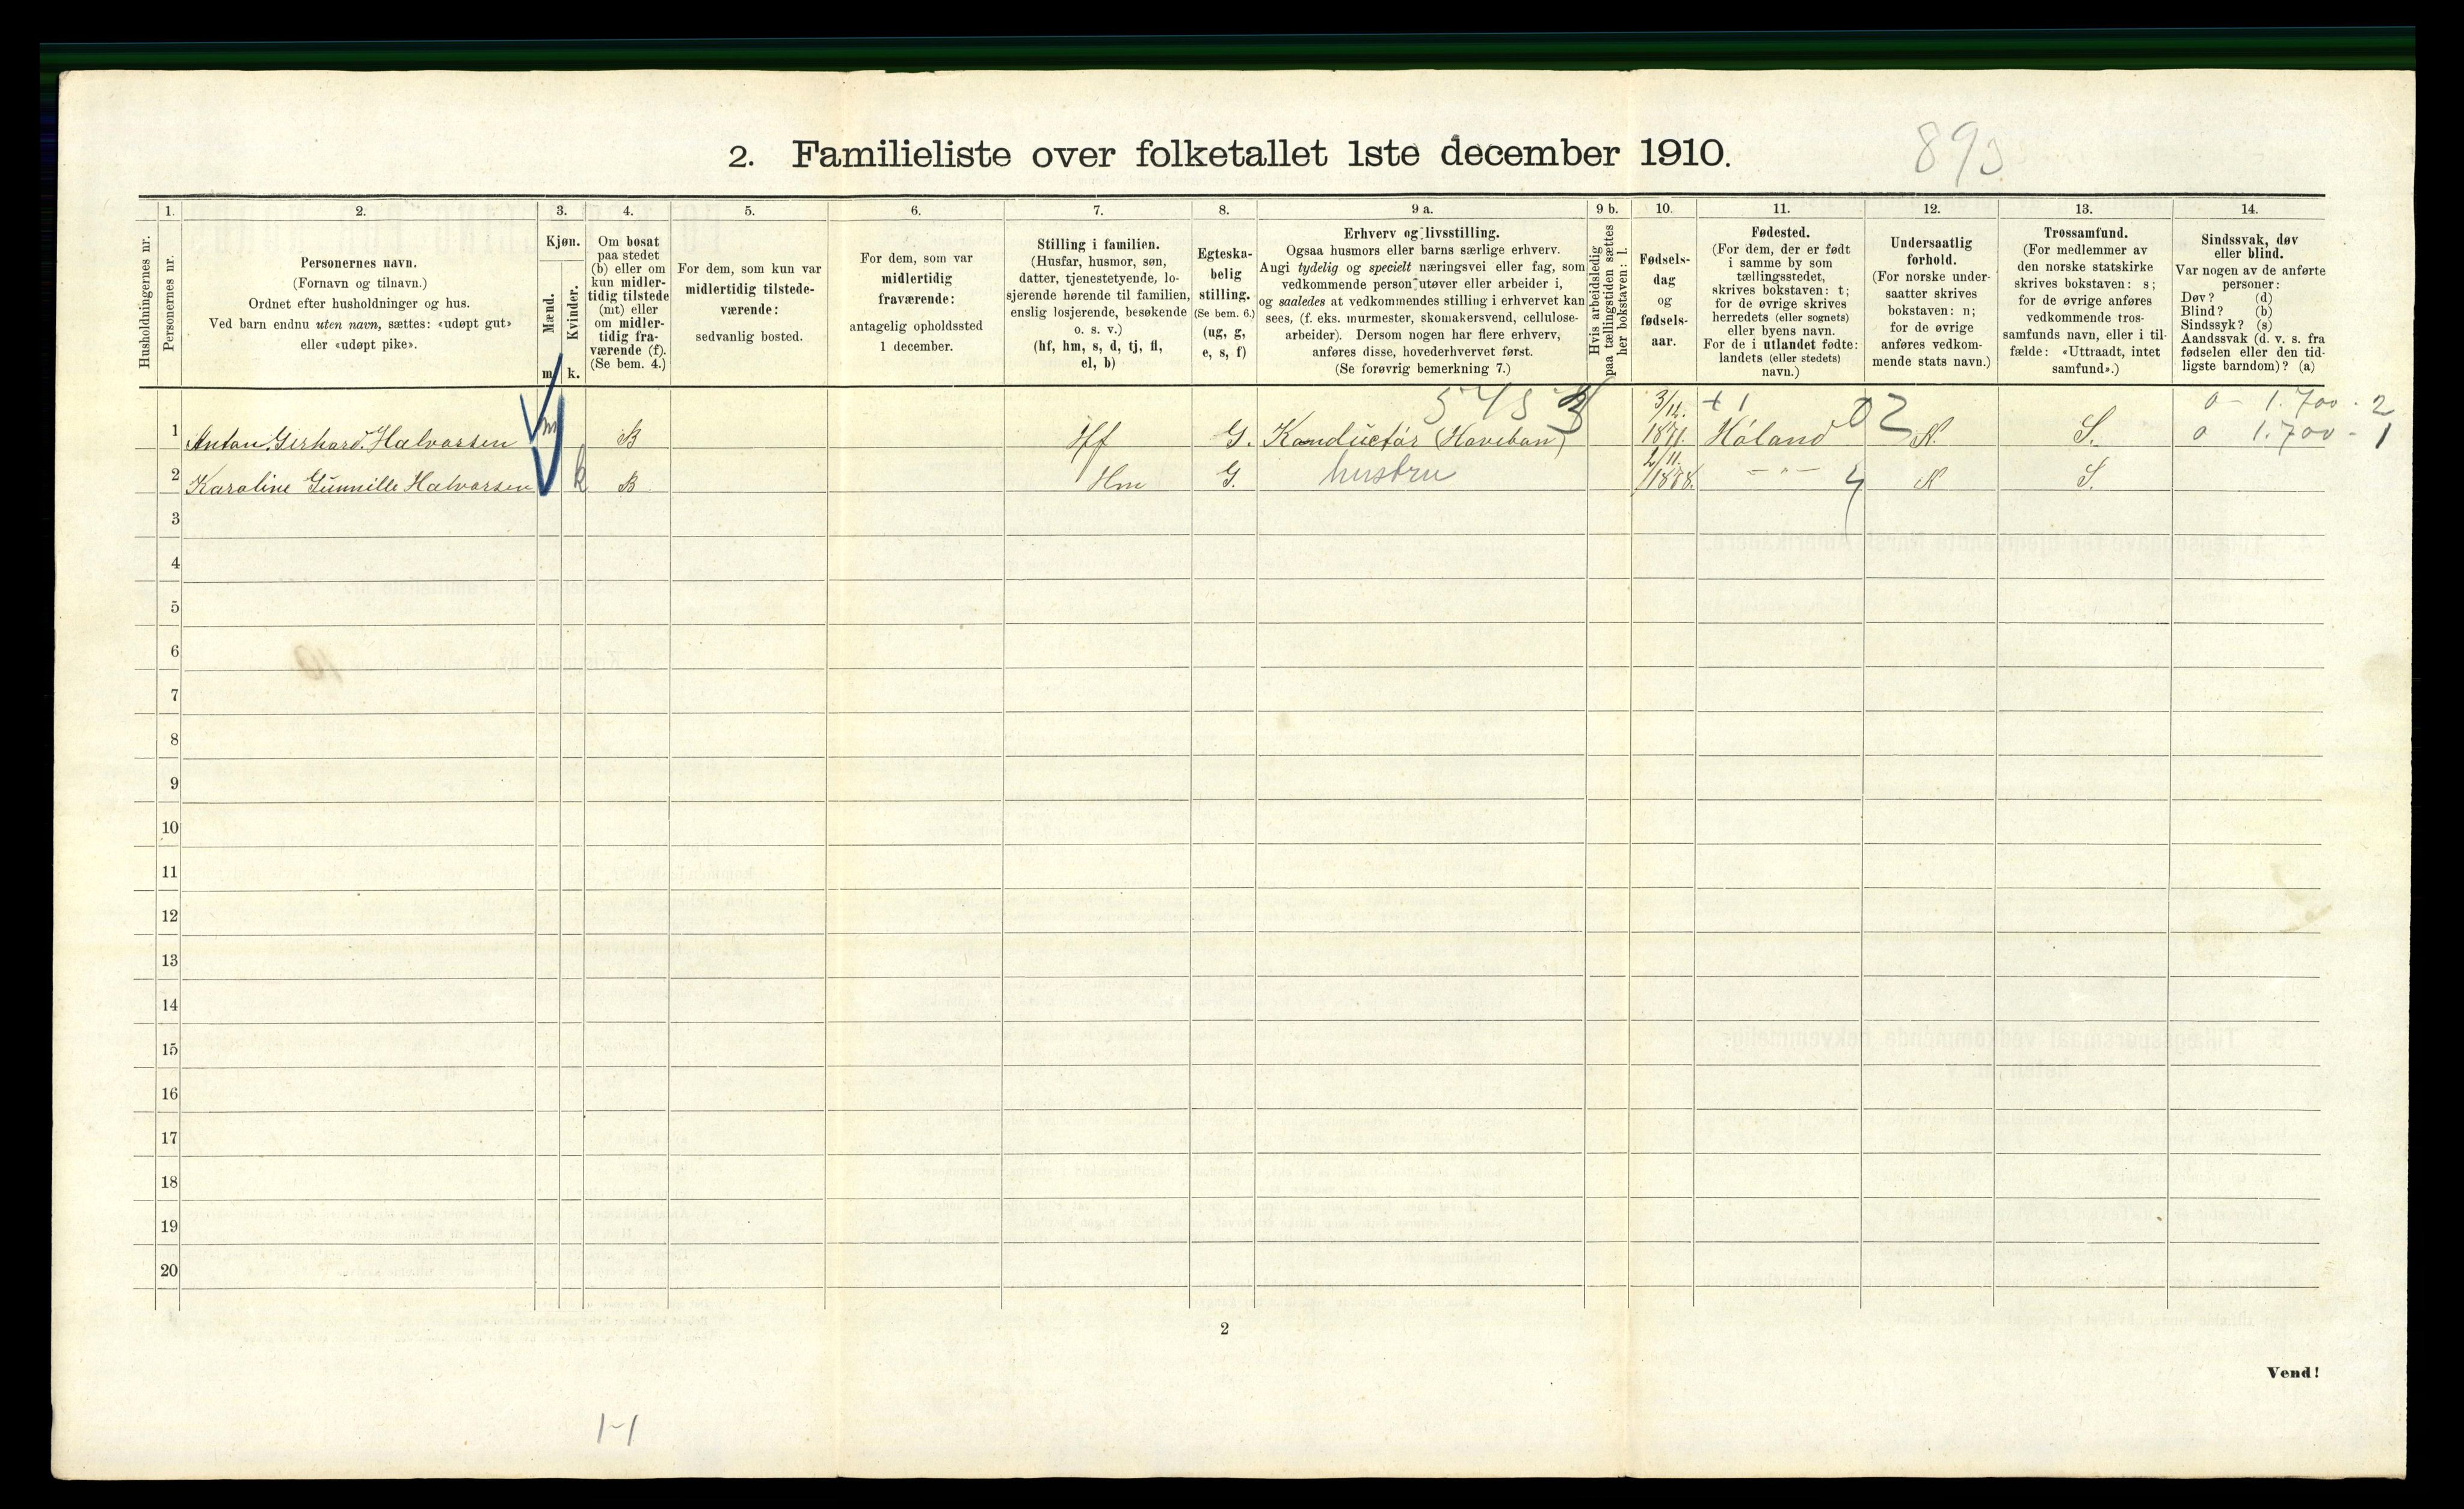 2. Familieliste over folketallet 1ste december 1910.
893
Husholdningernes nr.
1.
Personernes nr.
2.
Personernes navn.
(Fornavn og tilnavn.)
Ordnet efter husholdninger og hus.
Ved barn endnu uten navn, sættes: «udøpt gut»
eller «udøpt pike».
3.
Kjøn.
Mænd.
Kvinder.
m.
k.
4.
Om bosat
paa stedet
(b) eller om
kun midler-
tidig tilstede
(mt) eller
om midler-
tidig fra-
værende (f).
(Se bem. 4.)
5.
For dem, som kun var
midlertidig tilstede-
værende:
sedvanlig bosted.
6.
For dem, som var
midlertidig
fraværende:
antagelig opholdssted
1 december.
7.
Stilling i familien.
(Husfar, husmor, søn,
datter, tjenestetyende, lo-
sjerende hørende til familien,
enslig losjerende, besøkende
o. s. v.)
(hf, hm, s, d, tj, fl,
el, b)
8.
Egteska-
belig
stilling.
(Se bem. 6.)
(ug, g,
e, s, f)
9 a.
Erhverv og livsstilling.
Ogsaa husmors eller barns særlige erhverv.
Angi tydelig og specielt næringsvei eller fag, som
vedkommende person utøver eller arbeider i,
og saaledes at vedkommendes stilling i erhvervet kan
sees, (f. eks. murmester, skomakersvend, cellulose-
arbeider). Dersom nogen har flere erhverv,
anføres disse, hovederhvervet først.
(Se forøvrig bemerkning 7.)
9 b.
Hvis arbeidsledig
paa tællingstiden sættes
her bokstaven: l.
10.
Fødsels-
dag
og
fødsels-
aar.
11.
Fødested.
(For dem, der er født
i samme by som
tællingsstedet,
skrives bokstaven: t;
for de øvrige skrives
herredets (eller sognets)
eller byens navn.
For de i utlandet fødte:
landets (eller stedets)
navn.)
12.
Undersaatlig
forhold.
(For norske under-
saatter skrives
bokstaven: n;
for de øvrige
anføres vedkom-
mende stats navn.)
13.
Trossamfund.
(For medlemmer av
den norske statskirke
skrives bokstaven: s;
for de øvrige anføres
vedkommende tros-
samfunds navn, eller i til-
fælde: «Uttraadt, intet
samfund».)
14.
Sindssvak, døv
eller blind.
Var nogen av de anførte
personer:
Døv? (d)
Blind? (b)
Sindssyk? (s)
Aandssvak (d. v. s. fra
fødselen eller den tid-
ligste barndom)? (a)
3/12. 0 - 1.700 - 2
1 Anton Gerhard Halvorsen m B Hf G. Konductør (Haveban) 1871. Høland 02 N. S. 0 1.700 - 1
2 Karoline Gunnille Halvorsen k B Hm G. hustru 2/11 1878. - " - N S.
3
4
5
6
7
8
9
10
11
12
13
14
15
16
17
18
19
20
2
Vend!
1-1